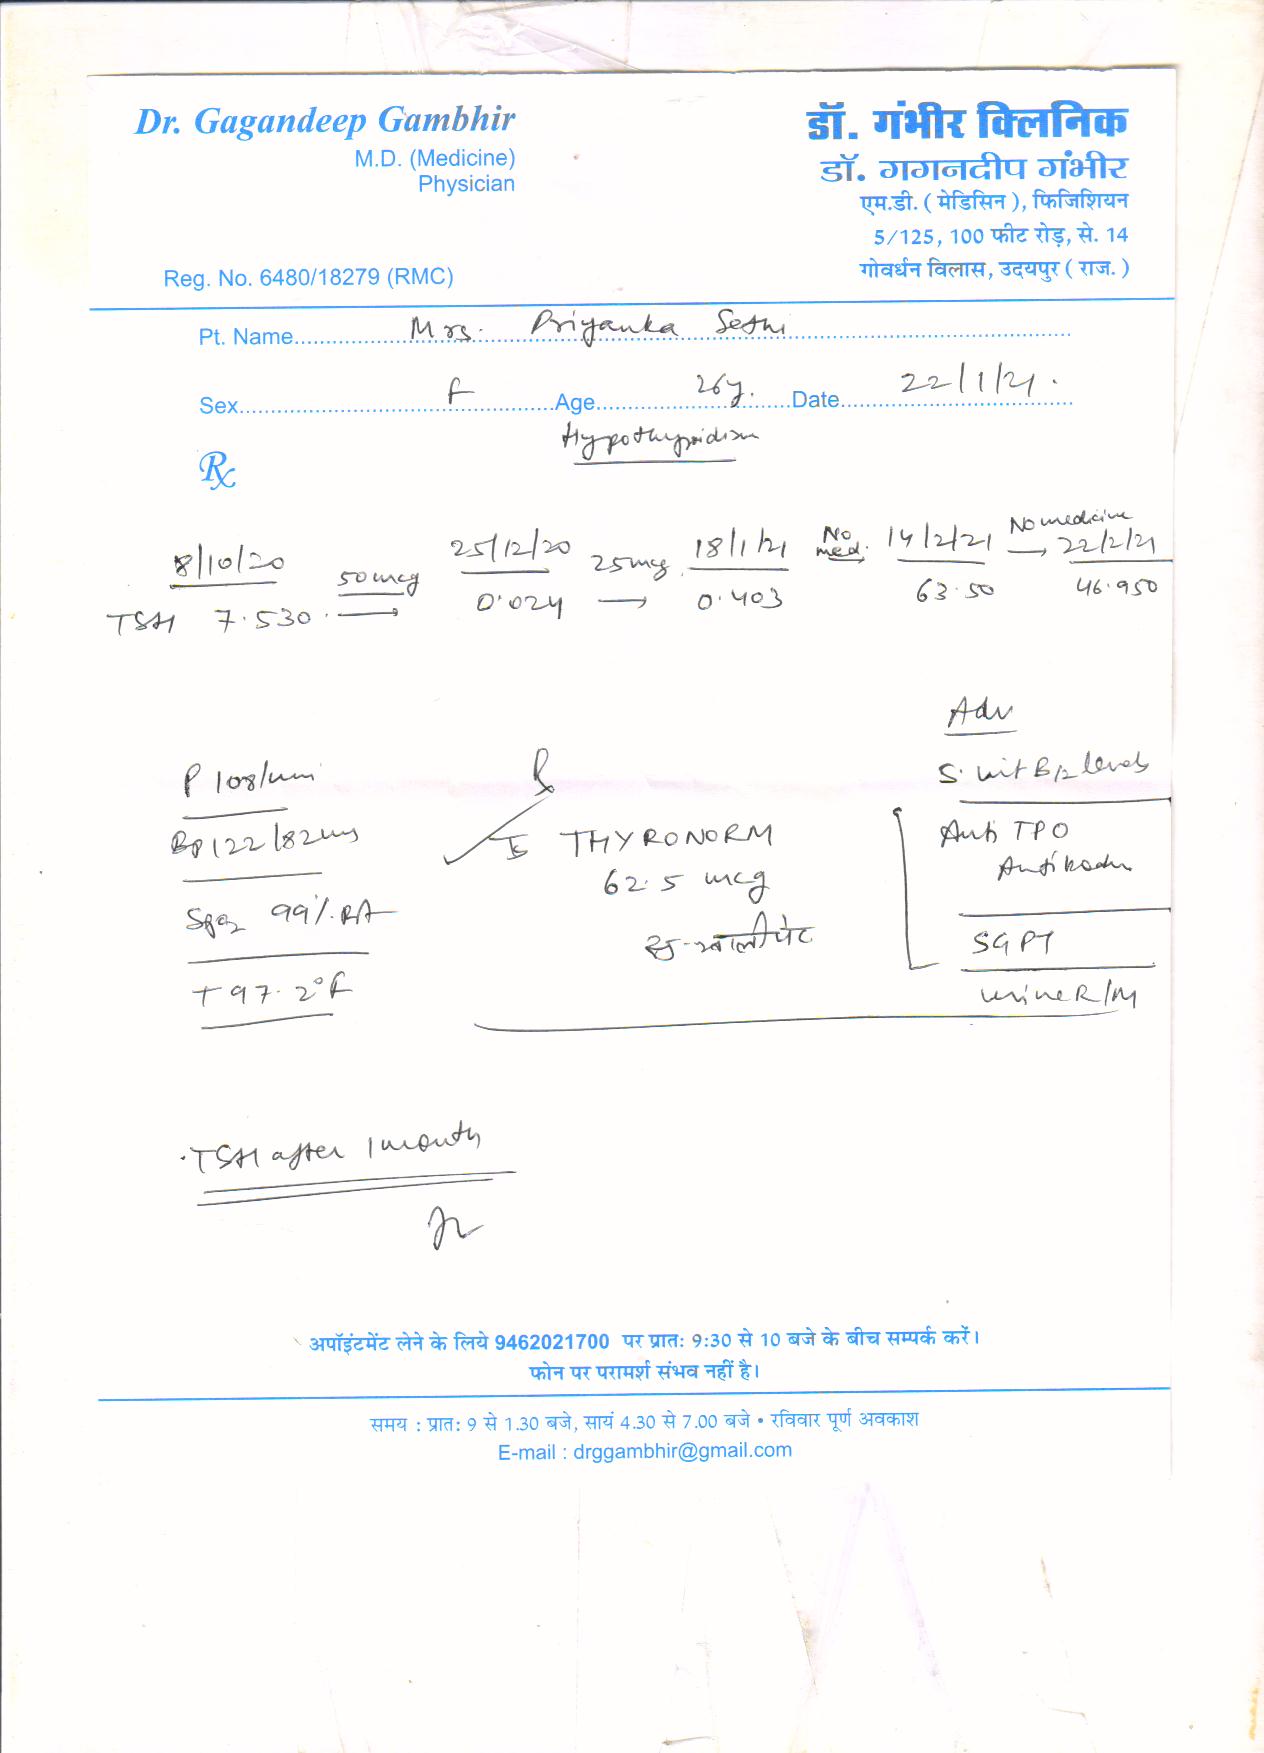 Dr. Gagandeep Gambhir
M.D. (Medicine)
Physician
Reg. No. 6480/18279 (RMC)
डॉ. गंभीर क्लिनिक
डॉ. गगनदीप गंभीर
एम.डी. ( मेडिसिन ), फिजिशियन
5/125, 100 फीट रोड़, से. 14
गोवर्धन विलास, उदयपुर ( राज. )
Pt. Name Mrs. Priyanka Sethi
Sex F Age 26y. Date 22/1/21.
Hypothyroidism
Rx
8/10/20 50 mcg 25/12/20 25mcg 18/1/21 No med. 14/2/21 No medicine → 22/2/21
TSH 7.530 → 0.024 → 0.403 63.50 46.950
Adv
P 108/min
S. vit B12 levels
BP 122/82
THYRONORM
Anti TPO
62.5 mcg
SpO2 99% RA
खाली पेट
SGPT
T 97.2°F
urine R/M
TSH after 1 month
अपॉइंटमेंट लेने के लिये 9462021700 पर प्रातः 9:30 से 10 बजे के बीच सम्पर्क करें।
फोन पर परामर्श संभव नहीं है।
समय : प्रातः 9 से 1.30 बजे, सायं 4.30 से 7.00 बजे • रविवार पूर्ण अवकाश
E-mail : drggambhir@gmail.com